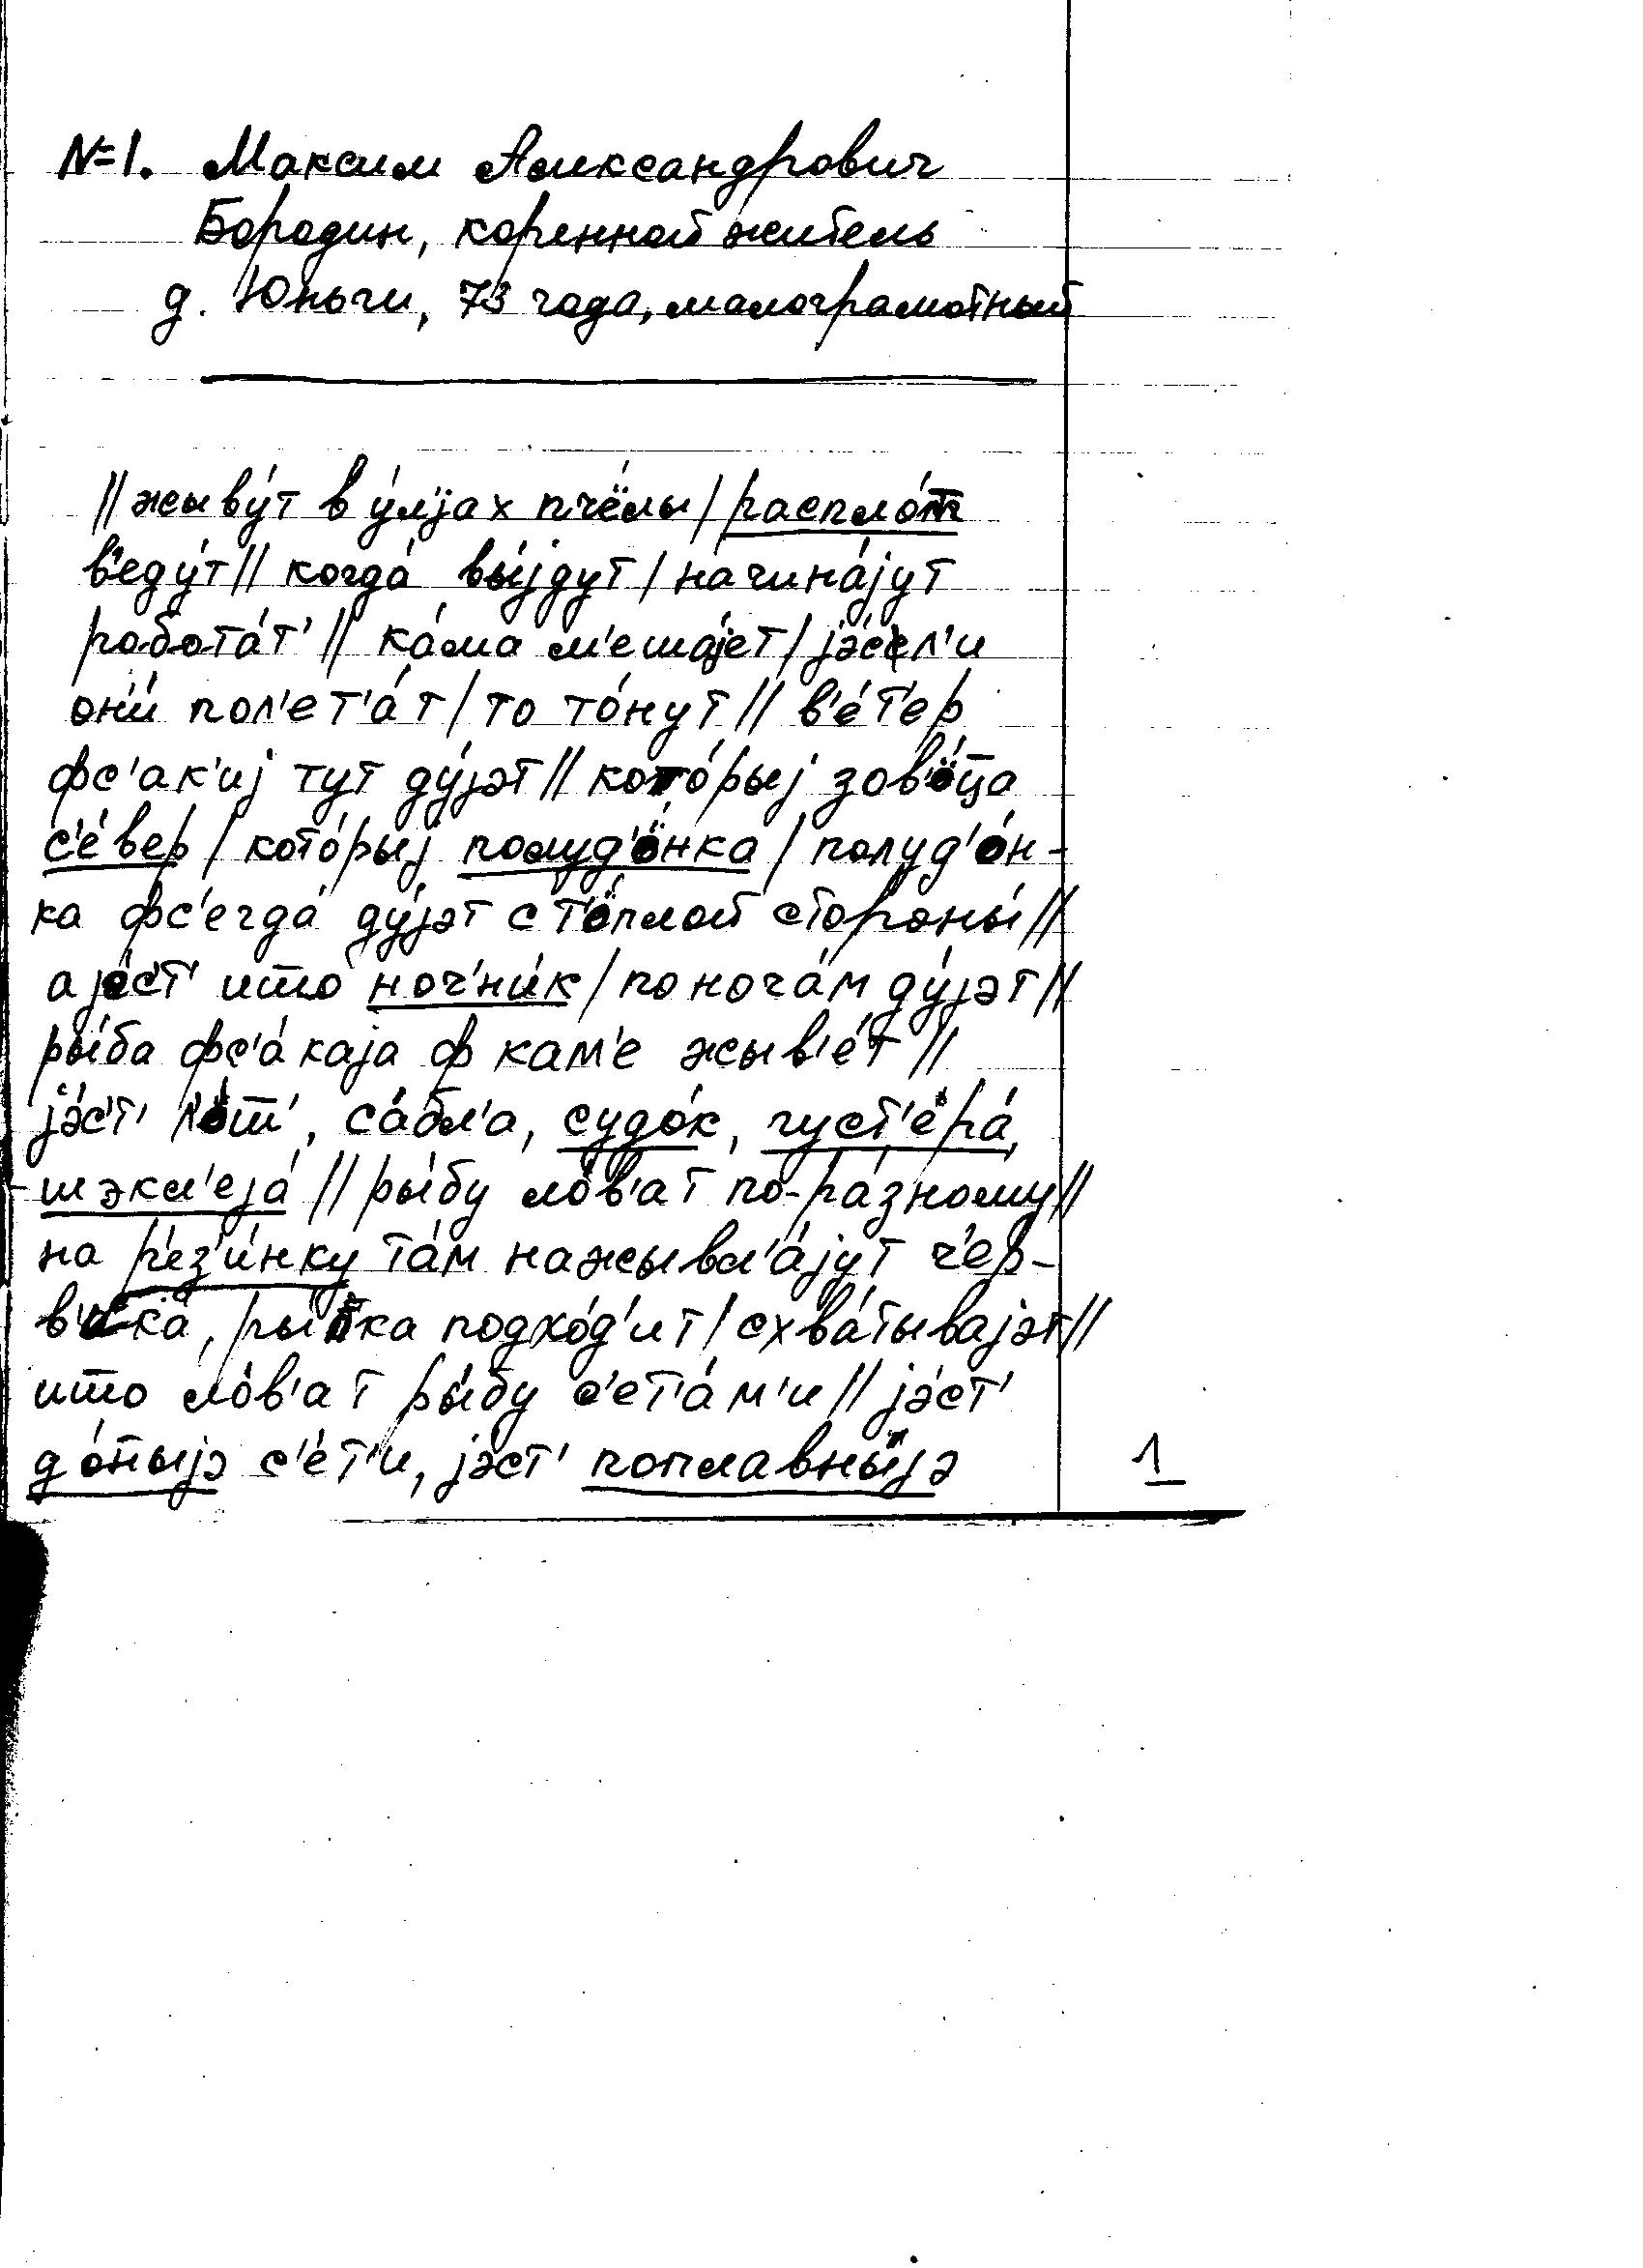 №1. Максим Александрович
Бородин, коренной житель
д. Юньги, 73 года, малограмотный
// жыву́т в у́л'јах пчёлы / распло́т
в'еду́т // когда́ вы́јдут / начина́јут
работа́т' // ка́ма м'еша́јет / јэ́сл'и
они́ пол'ет'а́т / то то́нут // в'е́т'ер
фс'ак'иј тут ду́јэт // кото́рыј зов'о́ца
с'е́вер / кото́рыј полуд'о́нка / полуд'о́н-
ка фс'егда́ ду́јэт с т'о́плой стороны́ //
а јест' што ноч'ни́к / по ноча́м ду́јэт //
ры́ба фс'а́каја ф кам'е жыв'е́т //
јэ́ст' л'о́ш', са́бл'а, судо́к, густ'ёра́,
шэкл'еја́ // ры́бу ло́в'ат по-ра́зному //
на р'ез'и́нку та́м нажывл'а́јут ч'ер-
в'ака́, ры́пка подхо́д'ит / схва́тывајэт //
што ло́в'ат ры́бу с'ет'а́м'и // јэ́ст'
до́ныјэ с'е́т'и, јэст' поплавны́јэ
1